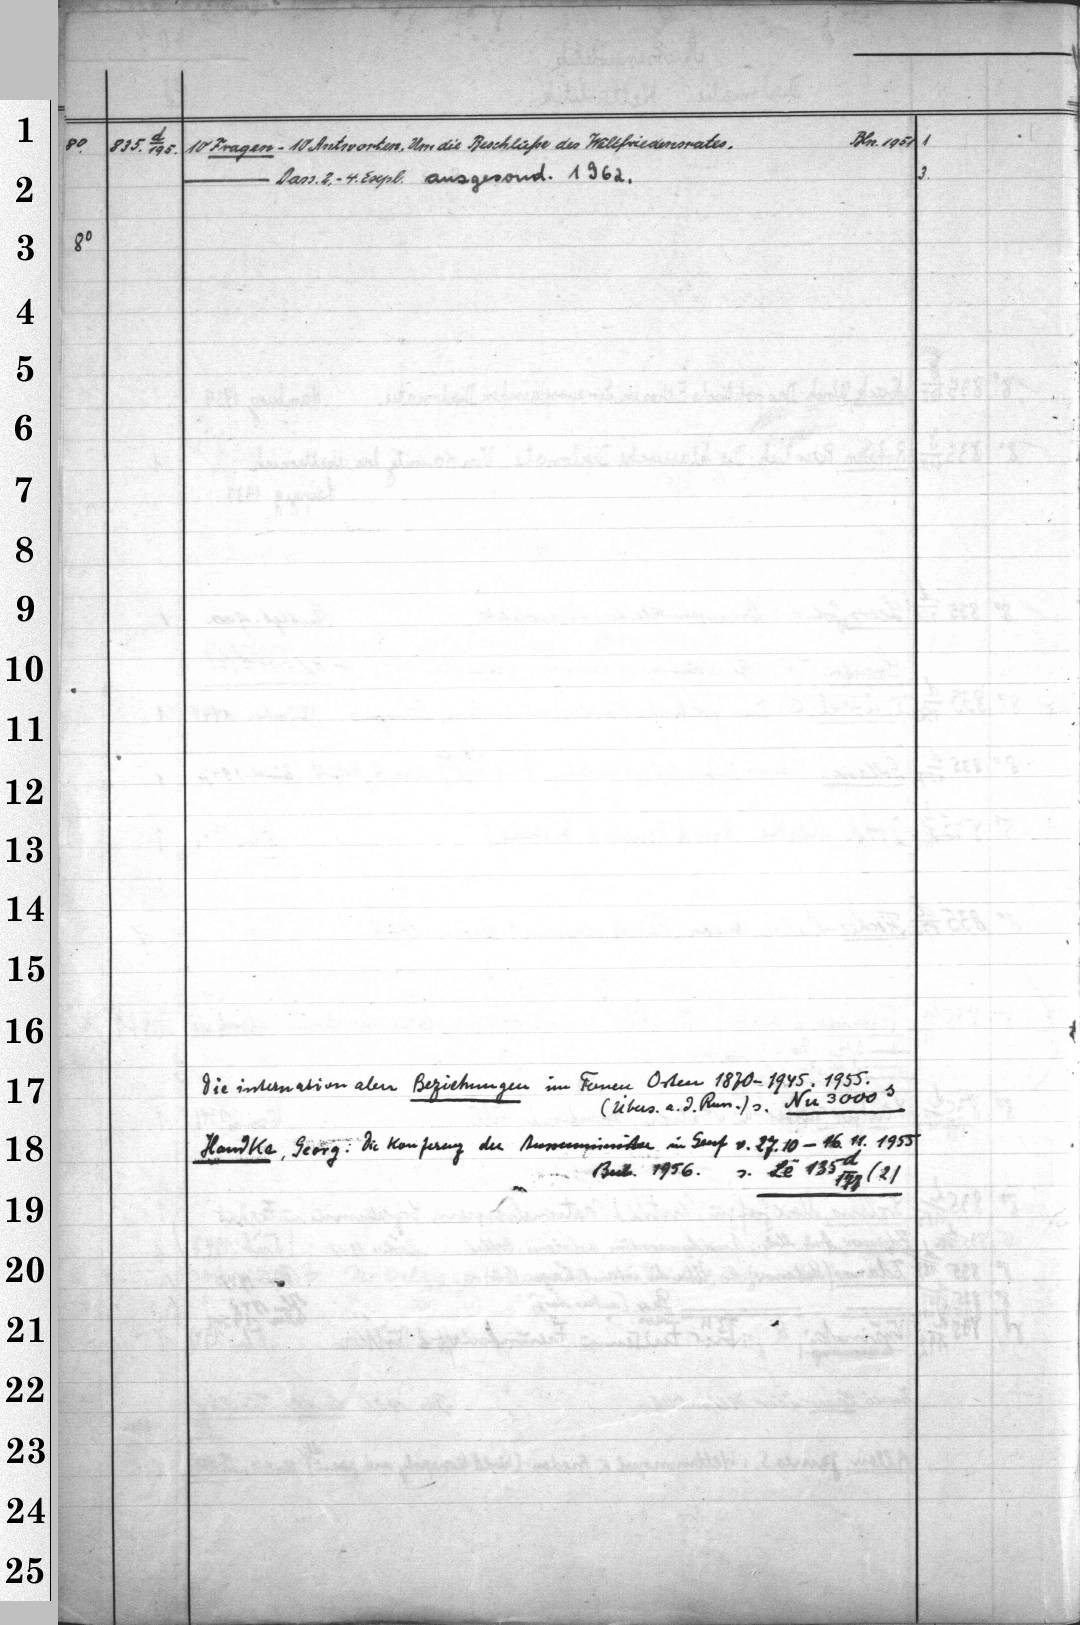 1
8°. 835. d/195. 10 Fragen - 10 Antworten. Um die Beschlüße des Weltfriedensrates. Bln. 1951 1
2
Dass. 2.-4. Expl. ausgesond. 1962. 3.
3
8°
4
5
6
7
8
9
10
11
12
13
14
15
16
17
Die internationalen Beziehungen im Fernen Osten 1870-1945. 1955.
(Übers. a. d. Russ.) s. Nu 3000 s
18
Handke, Georg: Die Konferenz der Aussenminister in Genf v. 27.10 - 16.11. 1955
Berl. 1956. s. Lë 135 d (2)
19
20
21
22
23
24
25